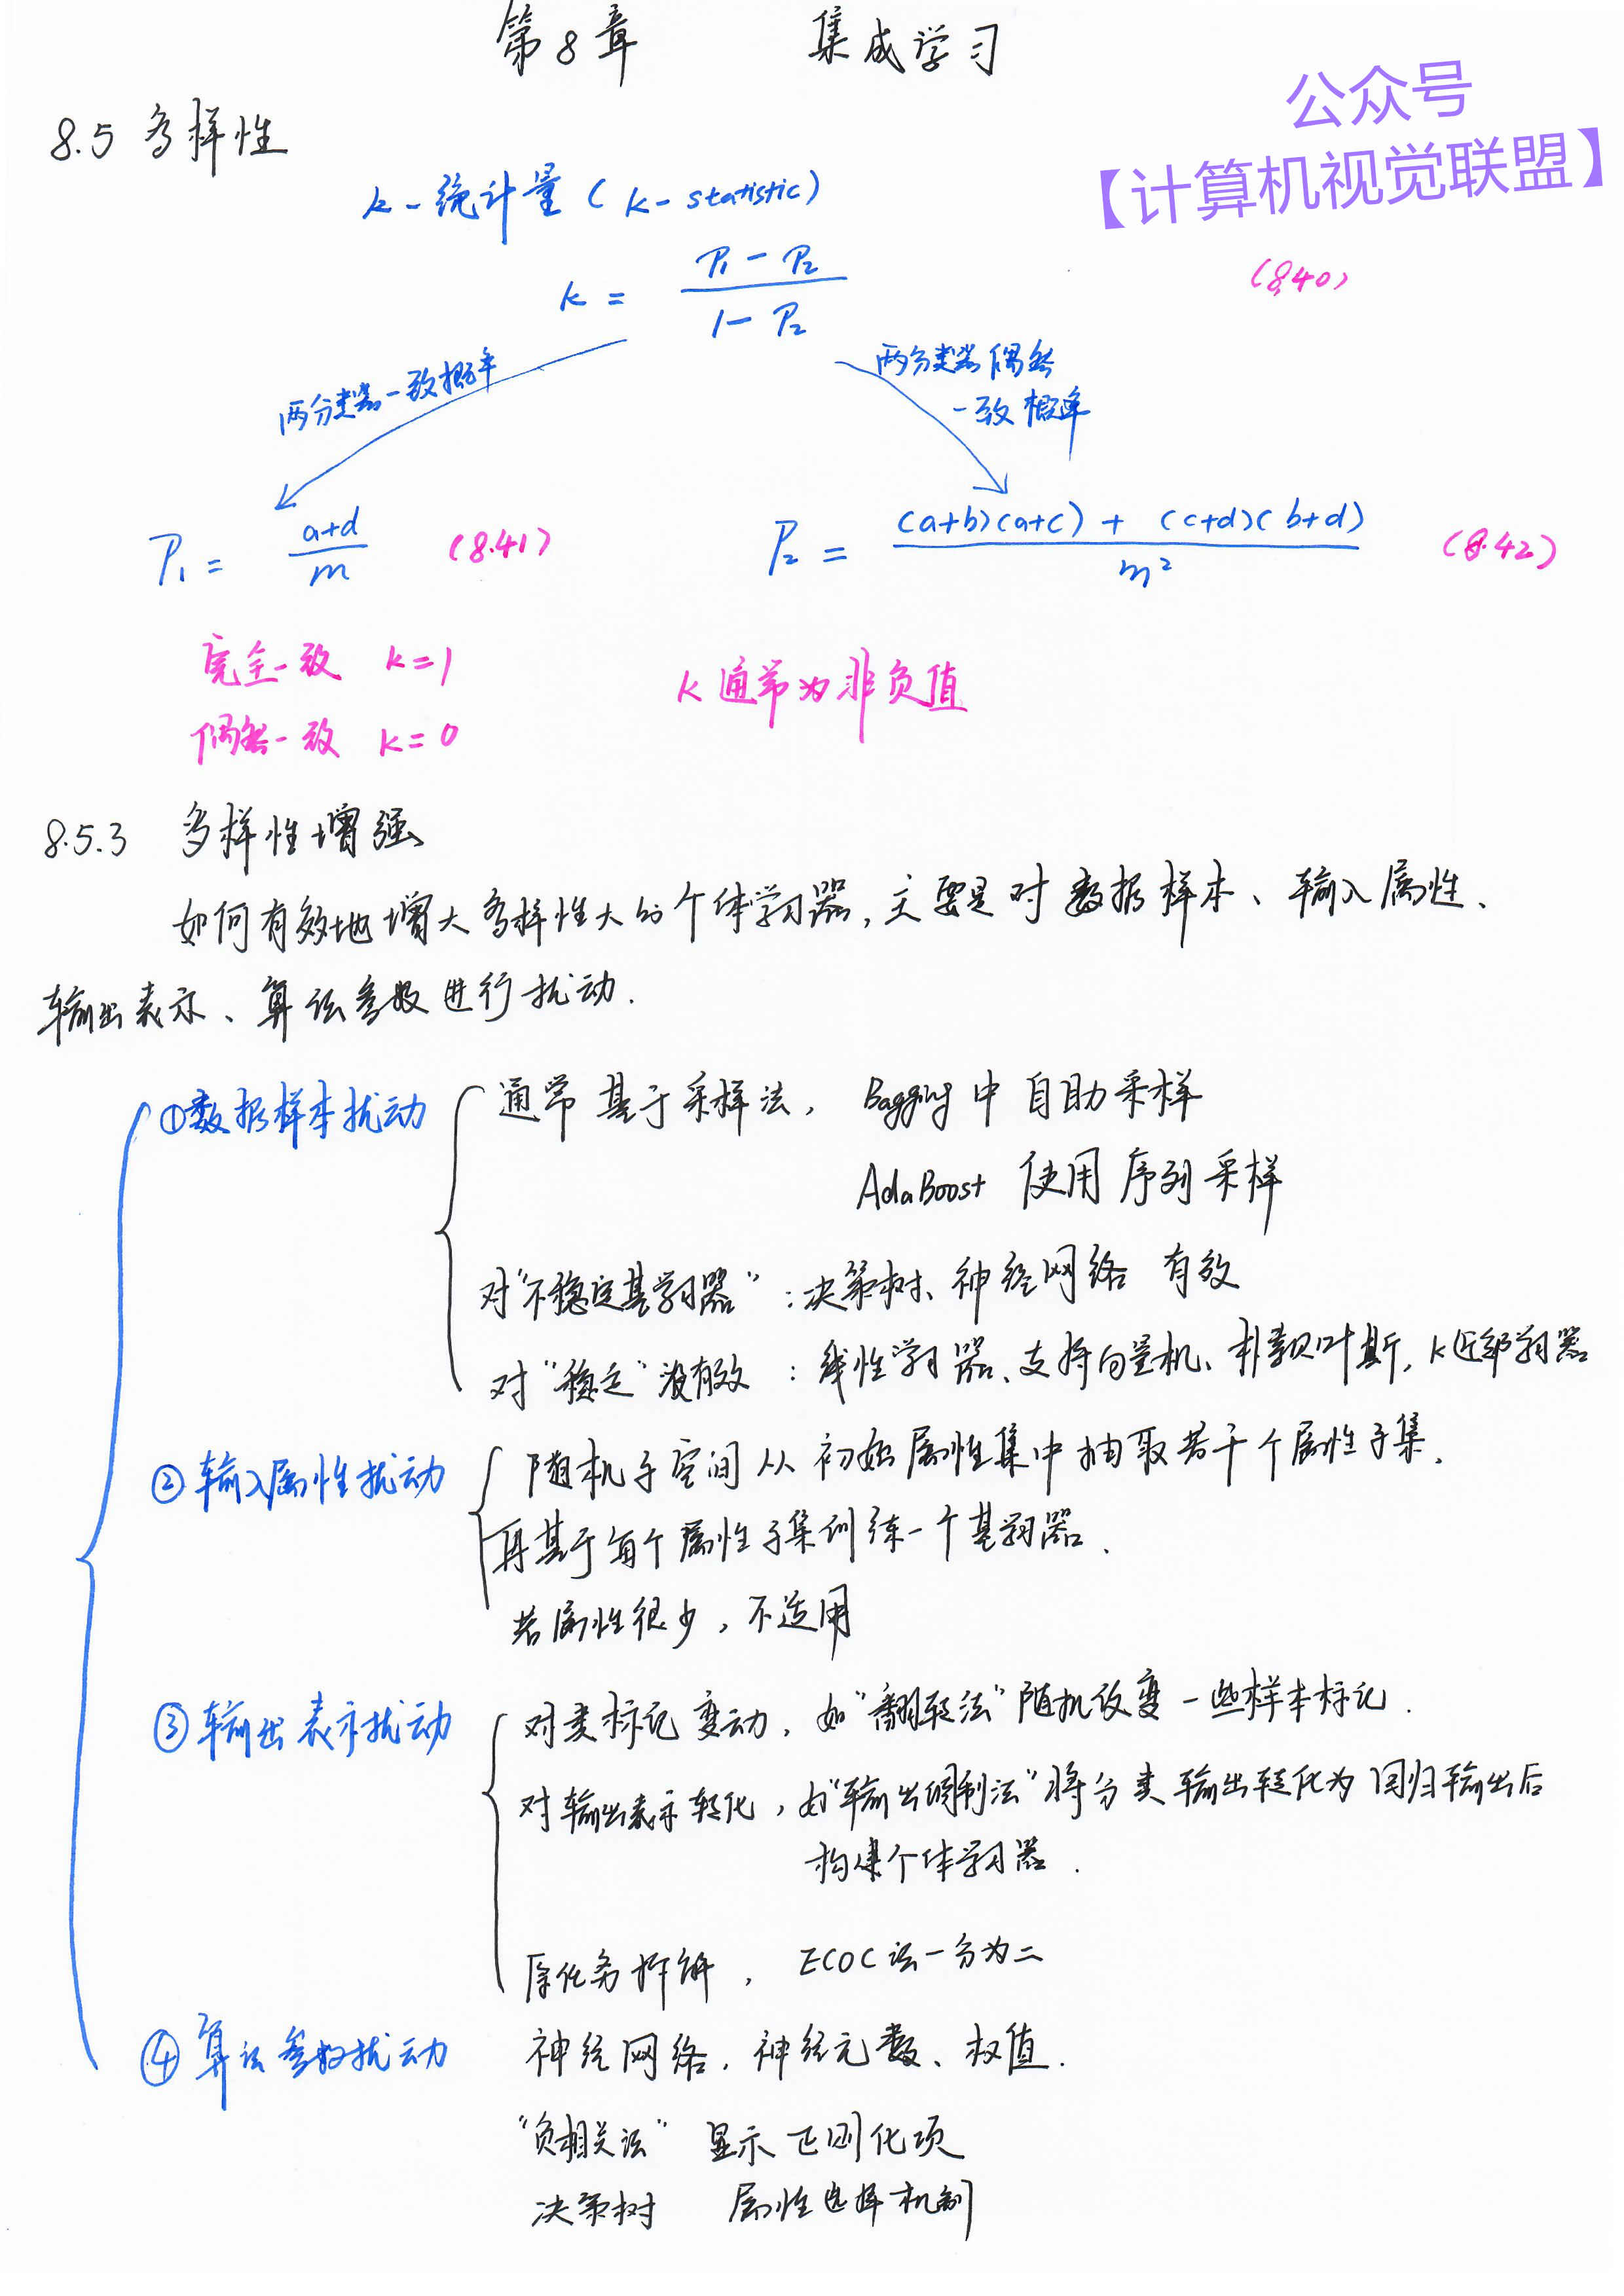 第8章 集成学习
公众号
【计算机视觉联盟】
8.5 多样性
k-统计量(k-statistic)
k = (P₁ - P₂) / (1 - P₂) (8.40)
两分类器一致概率
两分类器偶然
一致概率
P₁ = (a+d) / m (8.41)
P₂ = ((a+b)(a+c) + (c+d)(b+d)) / m² (8.42)
完全一致 k=1
k通常为非负值
偶然一致 k=0
8.5.3 多样性增强
如何有效地增大多样性大的个体学习器,主要是对数据样本、输入属性、
输出表示、算法参数进行扰动.
①数据样本扰动
通常基于采样法, Bagging中自助采样
AdaBoost 使用序列采样
对“不稳定基学习器”:决策树、神经网络 有效
对“稳定”没有效:线性学习器、支持向量机、朴素贝叶斯,k近邻学习器
②输入属性扰动
随机子空间从初始属性集中抽取若干个属性子集.
再基于每个属性子集训练一个基学习器、
若属性很少,不适用
③输出表示扰动
对类标记变动,如“翻转法”随机改变一些样本标记.
对输出表示转化,如“输出调制法”将分类输出转化为回归输出后
构建个体学习器.
原任务拆解, ECOC法一分为二
④算法参数扰动
神经网络,神经元数、权值.
“负相关法” 显示正则化项
决策树 属性选择机制